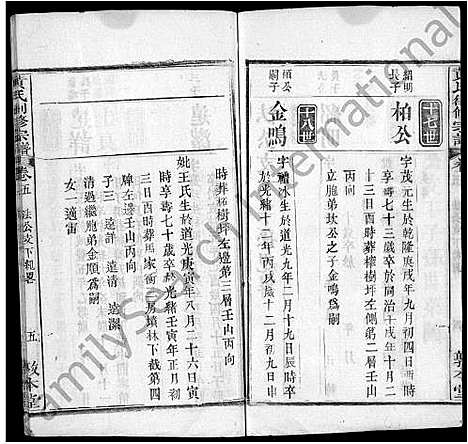 十七世
紹明長子
柏公
字茂元生於乾隆庚戌年九月初四日
月享壽七十三歲卒於同治十年十月二
十三日酉時葬樟樹坪左側第二層壬山
丙向
立胞弟炊公之子金鳴爲嗣
十八世
柏公嗣子
金鳴
字禮冰生於道光九年二月十九日辰時卒
於光緒十二年丙戌十二月初九日申
時葬樟樹坪左邊第三層壬山丙向
妣王氏生於道光庚寅年八月二十六日寅
時享壽七十歲卒於光緒壬寅年正月初
三日酉時葬馬家衝房墳林下第四
牌左邊壬山丙向
子三 遠詳 遠清 遠潔
清過繼胞弟金順爲嗣
女一適甯
黃氏創修宗譜
卷五
法公支下
五
敦本堂
FamilySearch International